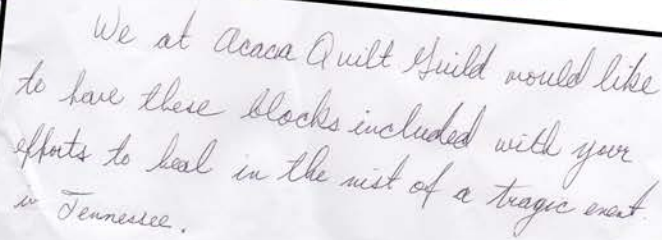 We at Acacia Quilt Guild would like
to have these blocks included with your
efforts to heal in the mist of a tragic event
in Tennessee.